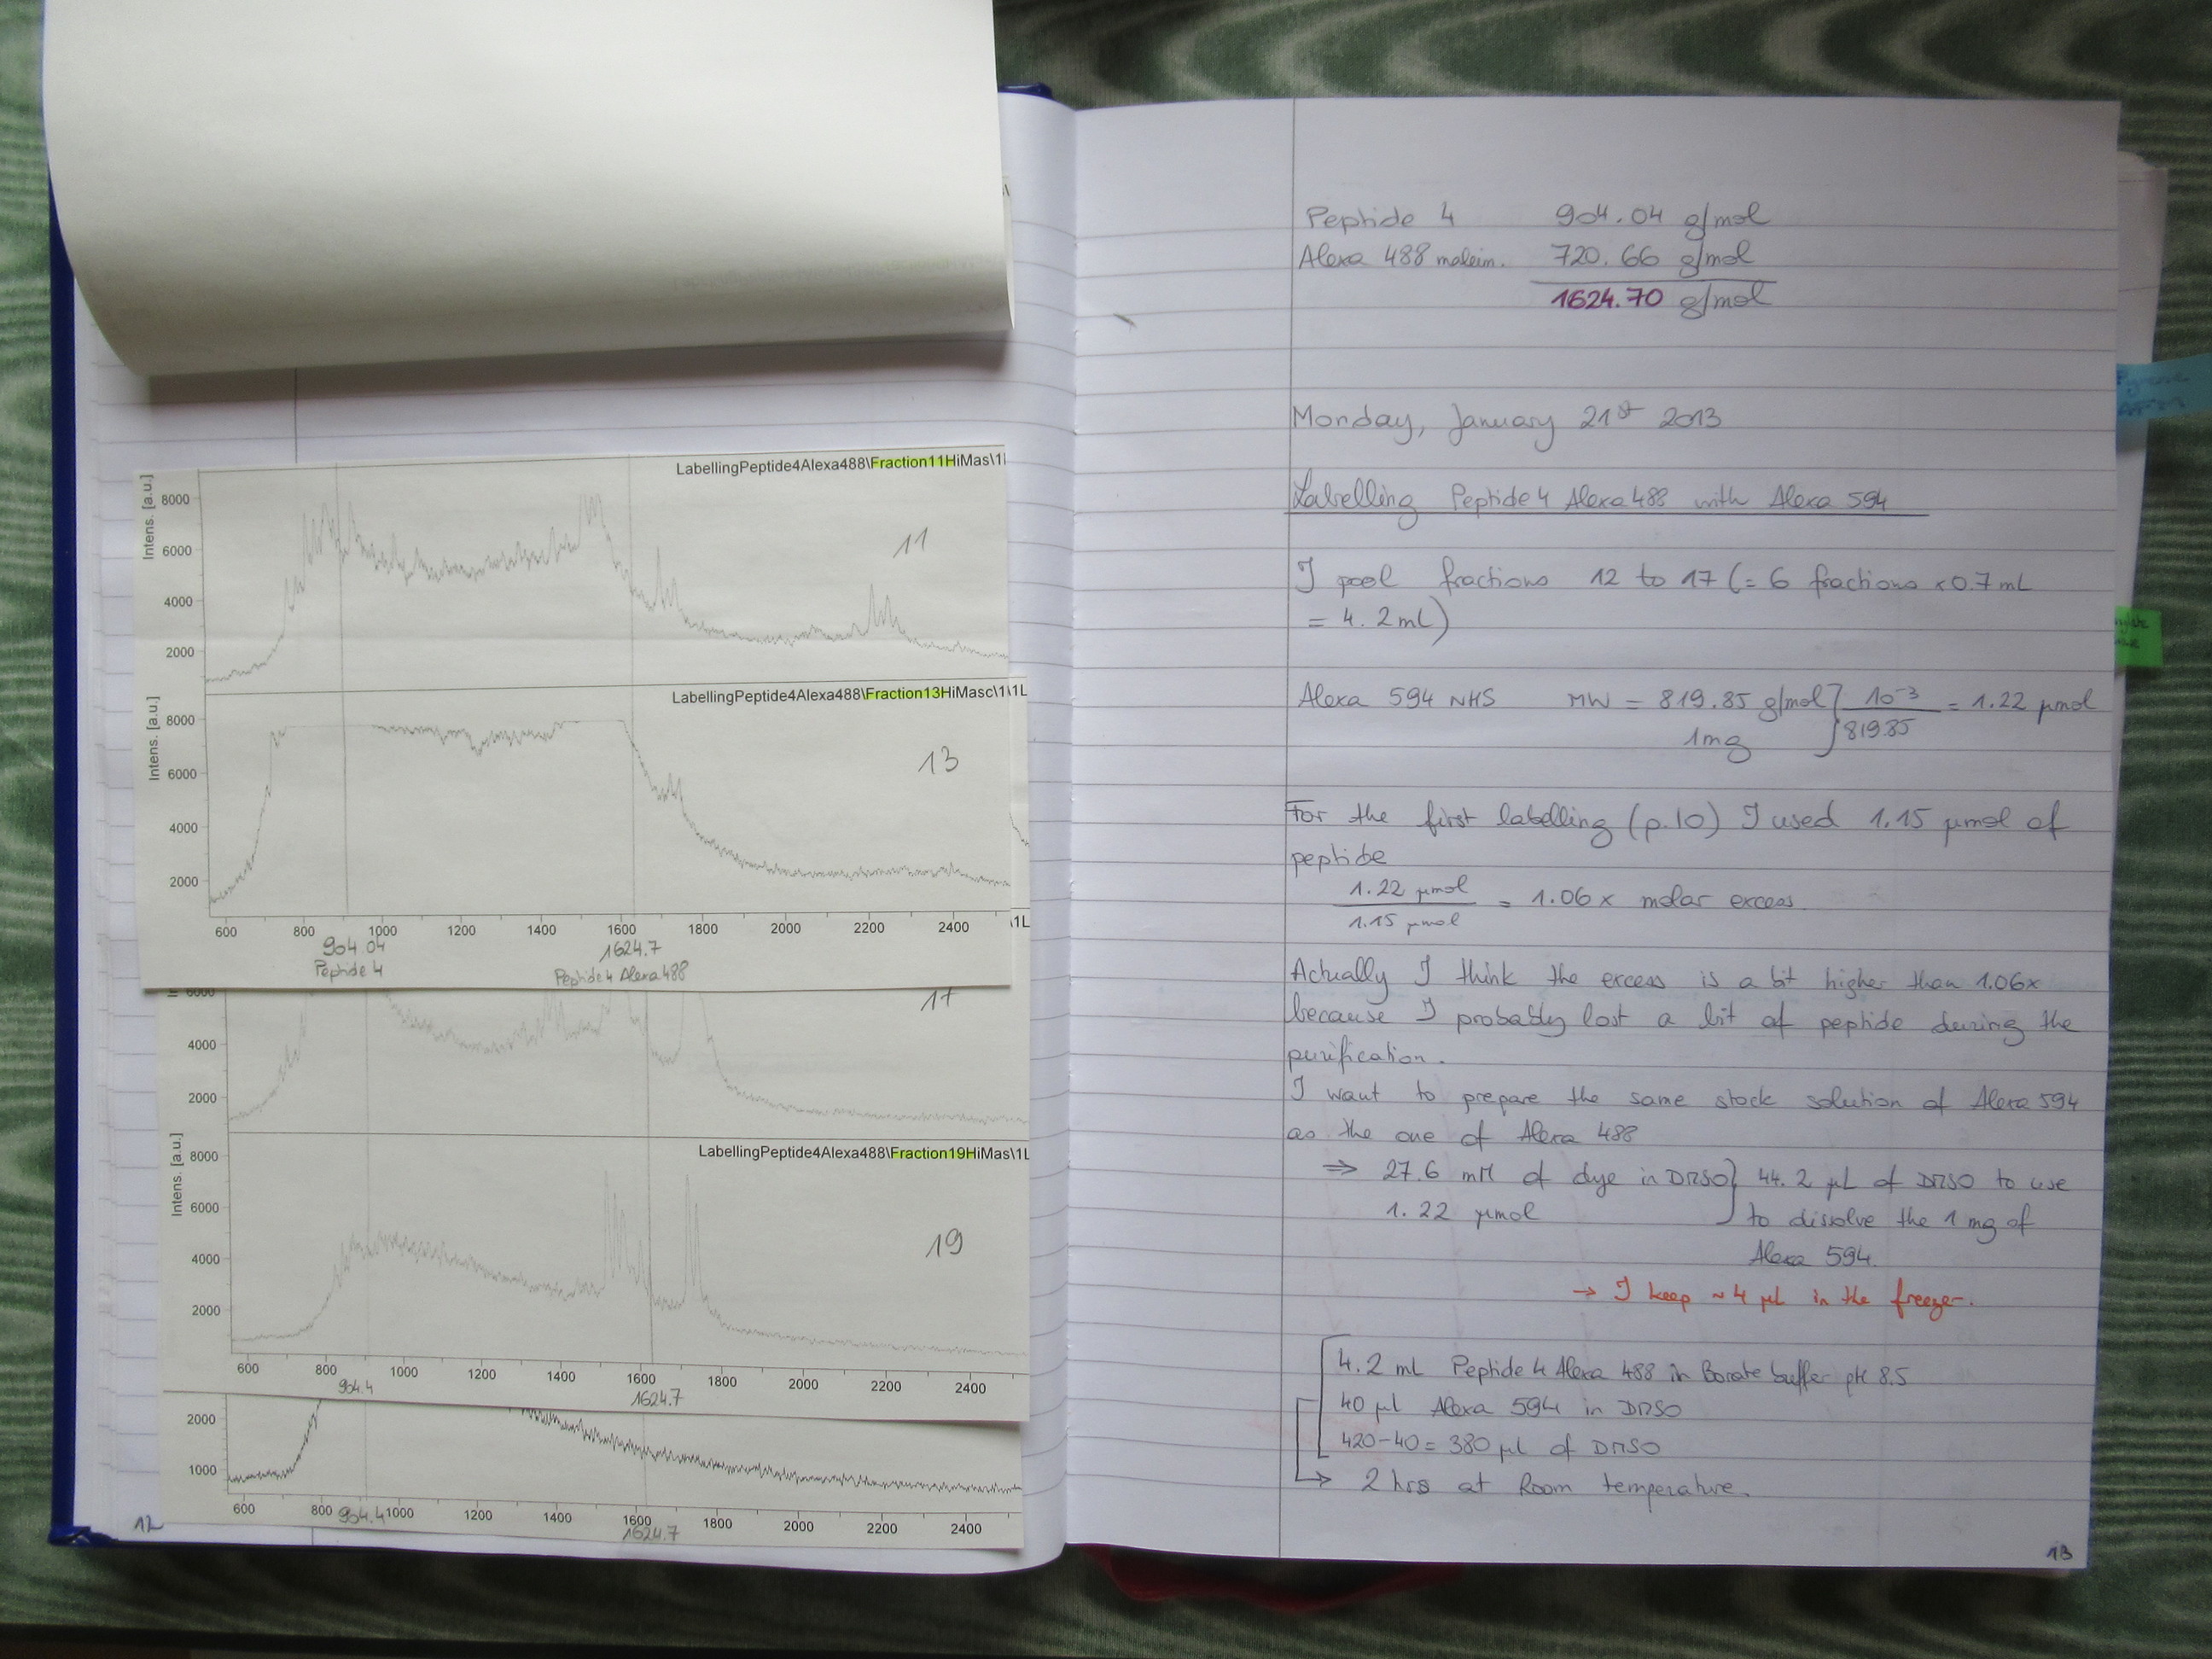 LabellingPeptide4Alexa488\Fraction11HiMas\1
Intens. [a.u.]
8000
6000
4000
2000
11
LabellingPeptide4Alexa488\Fraction13HiMasc\1\1L
Intens. [a.u.]
8000
6000
4000
2000
13
600 800 1000 1200 1400 1600 1800 2000 2200 2400
\1L
904.04 1624.7
Peptide 4 Peptide 4 Alexa 488
6000
4000
2000
17
LabellingPeptide4Alexa488\Fraction19HiMas\1L
Intens. [a.u.]
8000
6000
4000
2000
19
600 800 1000 1200 1400 1600 1800 2000 2200 2400
904.4 1624.7
2000
1000
600 800 1000 1200 1400 1600 1800 2000 2200 2400
904.4 1624.7
12
Peptide 4 904.04 g/mol
Alexa 488 maleim. 720.66 g/mol
1624.70 g/mol
Monday, January 21st 2013
Labelling Peptide 4 Alexa 488 with Alexa 594
I pool fractions 12 to 17 (= 6 fractions x 0.7 mL
= 4.2 mL)
Alexa 594 NHS MW = 819.85 g/mol } 10⁻³ / 819.85 = 1.22 µmol
1mg
For the first labelling (p.10) I used 1.15 µmol of
peptide
1.22 µmol / 1.15 µmol = 1.06 x molar excess.
Actually I think the excess is a bit higher than 1.06x
because I probably lost a bit of peptide during the
purification.
I want to prepare the same stock solution of Alexa 594
as the one of Alexa 488
⇒ 27.6 mM of dye in DMSO } 44.2 µL of DMSO to use
1.22 µmol to dissolve the 1 mg of
Alexa 594.
→ I keep ~ 4 µL in the freezer.
4.2 mL Peptide 4 Alexa 488 in Borate buffer pH 8.5
40 µL Alexa 594 in DMSO
420-40 = 380 µL of DMSO
→ 2 hrs at Room temperature.
13